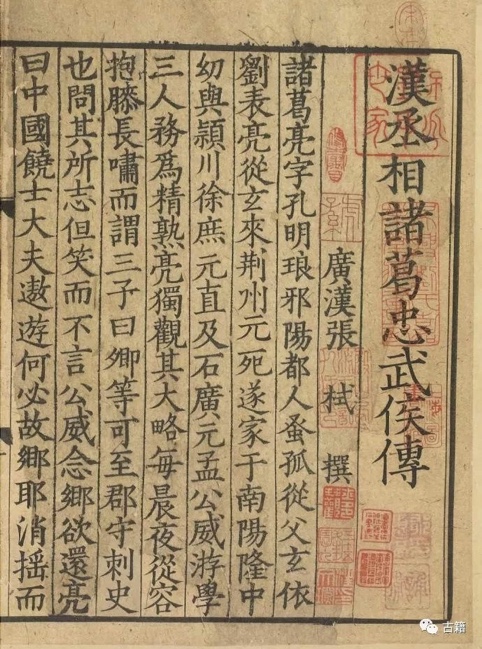 漢丞相諸葛忠武侯傳
廣漢張 栻 撰
諸葛亮字孔明琅邪陽都人蚤孤從父玄依
劉表亮從玄來荆州元死遂家于南陽隆中
幼與潁川徐庶元直及石廣元孟公威游學
三人務爲精熟亮獨觀其大略每晨夜從容
抱膝長嘯而謂三子曰卿等可至郡守刺史
也問其所志但笑而不言公威念鄉欲還亮
曰中國饒士大夫遨遊何必故鄉耶消揺而
古籍